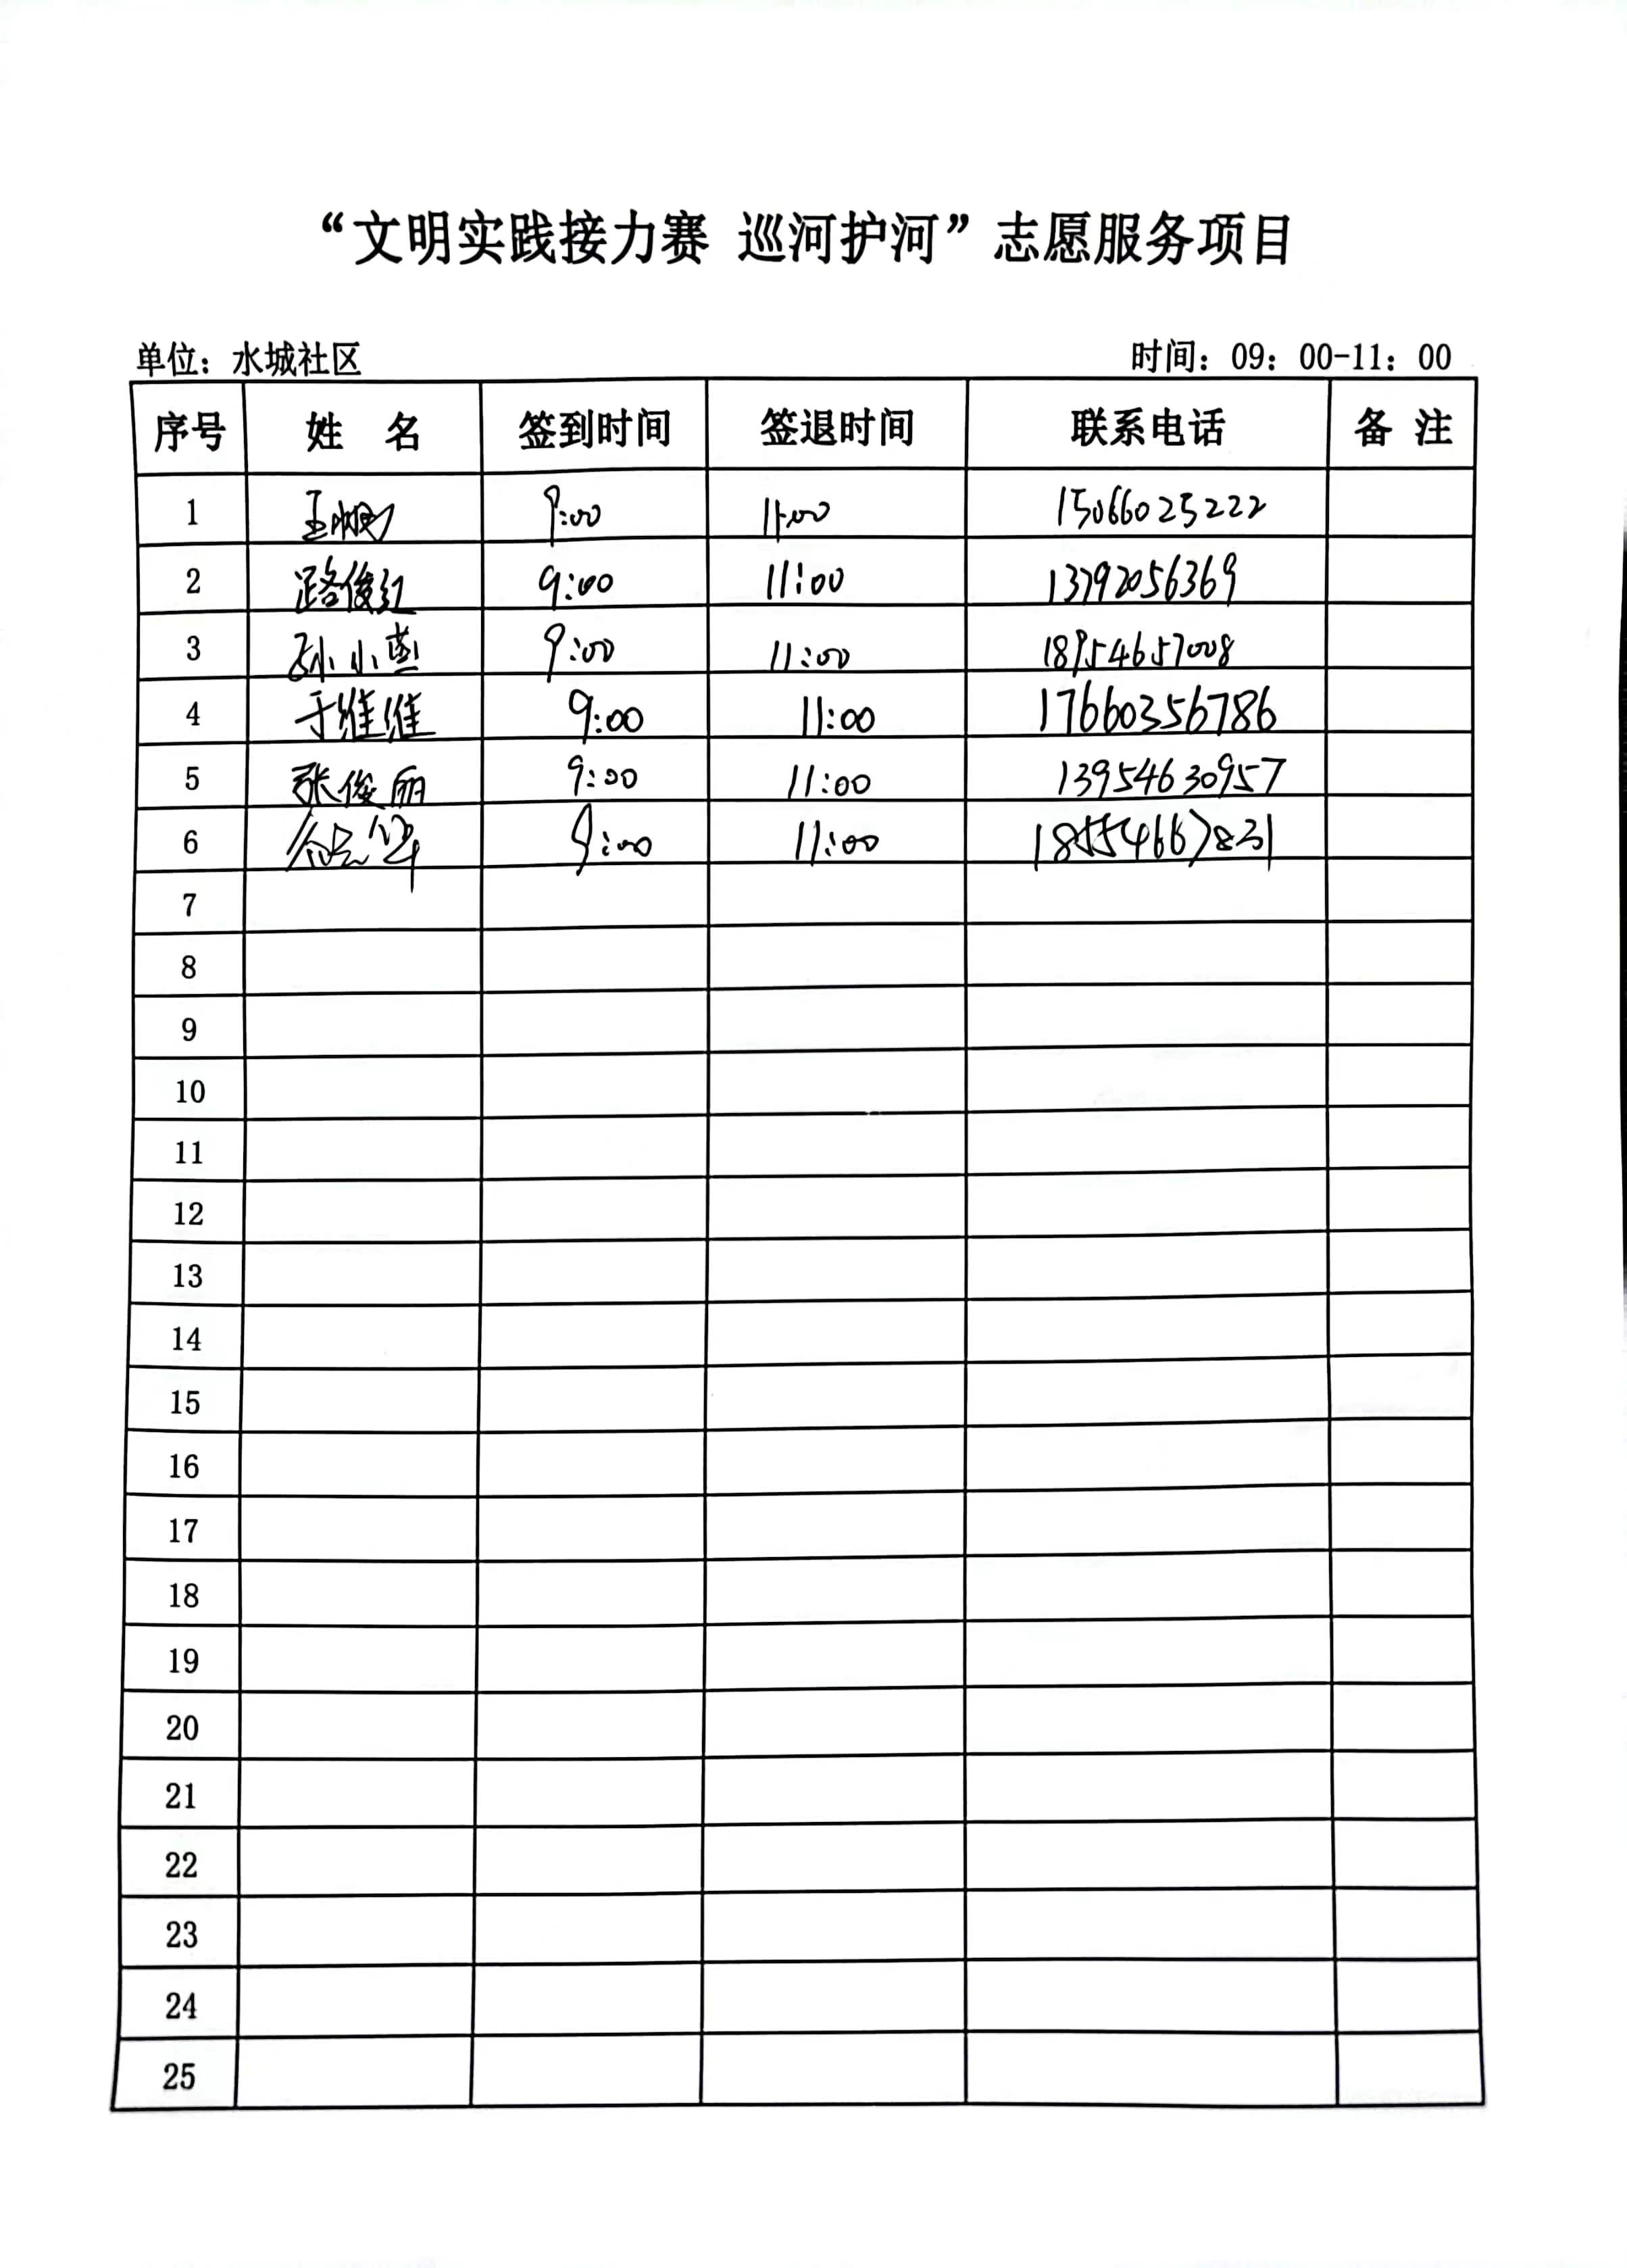 “文明实践接力赛 巡河护河”志愿服务项目
单位：水城社区 时间：09：00-11：00
序号 姓 名 签到时间 签退时间 联系电话 备 注
1 9:00 11:00 15066025222
2 路俊红 9:00 11:00 13792056369
3 孙小燕 9:00 11:00 18954657008
4 于维维 9:00 11:00 17660356786
5 张俊丽 9:00 11:00 13954630957
6 9:00 11:00 18554667831
7
8
9
10
11
12
13
14
15
16
17
18
19
20
21
22
23
24
25